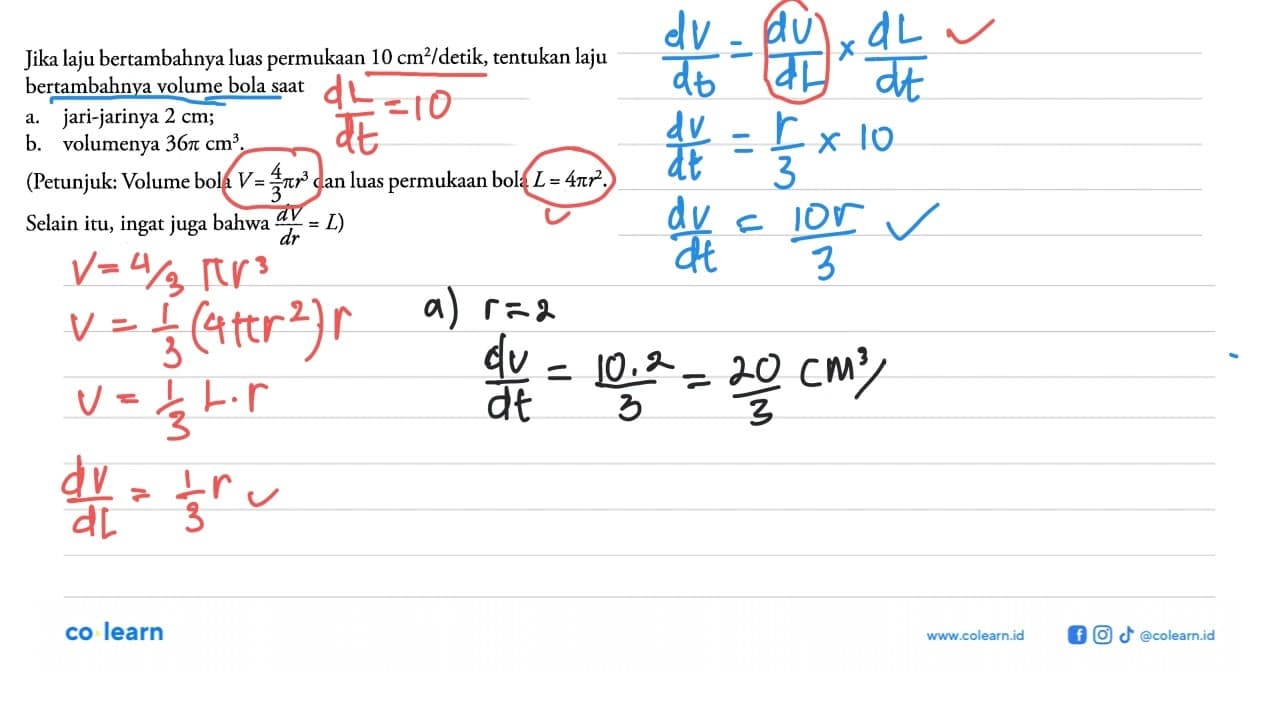 Jika laju bertambahnya luas permukaan 10 cm²/detik, tentukan laju
bertambahnya volume bola saat
a. jari-jarinya 2 cm;
b. volumenya 36π cm³.
(Petunjuk: Volume bola V = 4/3 πr³ dan luas permukaan bola L = 4πr².
Selain itu, ingat juga bahwa dV/dr = L)
dL/dt = 10
V = 4/3 πr³
V = 1/3 (4πr²) r
V = 1/3 L.r
dV/dL = 1/3 r ✓
dV/dt = dV/dL × dL/dt ✓
dV/dt = r/3 × 10
dV/dt = 10r/3 ✓
a) r = 2
dv/dt = 10.2/3 = 20/3 cm³/
co learn
www.colearn.id
@colearn.id